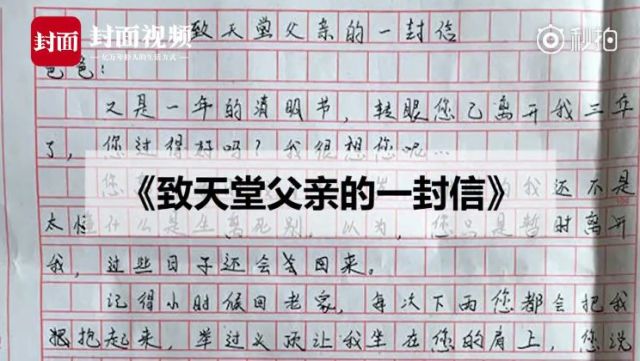 封面 封面视频
亿万年轻人的生活方式
秒拍
致天堂父亲的一封信
爸爸：
又是一年的清明节，转眼您已离开我三年
了，您过得好吗？我很想您呢…
我还不是
《致天堂父亲的一封信》
太懂什么是生离死别，以为，您只是暂时离开
我，过些日子还会回来。
记得小时候回老家，每次下雨您都会把我
抱起来，举过头顶让我坐在您的肩上，您说